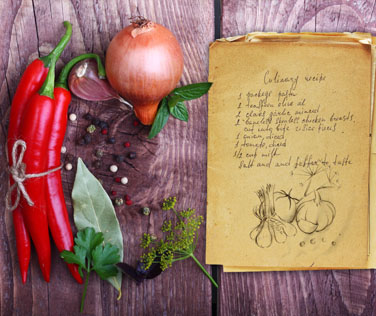 Culinary recipe
1 package pasta
2 teaspoon olive oil
2 cloves garlic minced
2 boneless skinless chicken breasts,
cut into bite size pieces
1 onion, diced
1 tomato, diced
1/2 cup milk
Salt and and pepper to taste